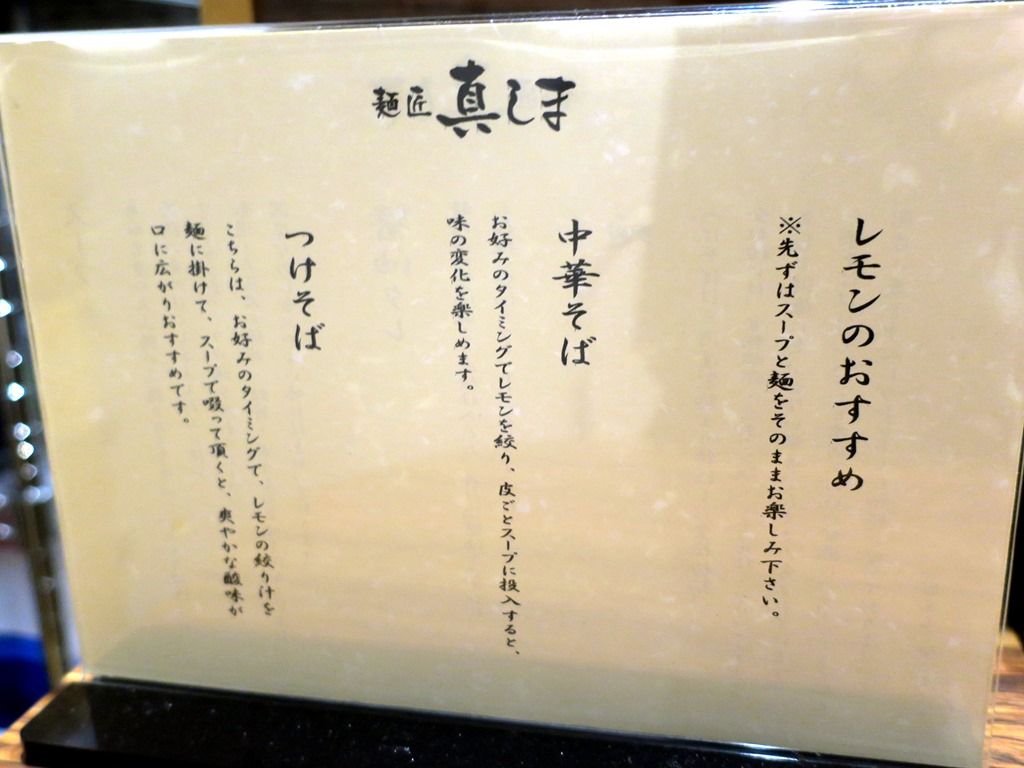 麺匠 真しま
レモンのおすすめ
※先ずはスープと麺をそのままお楽しみ下さい。
中華そば
お好みのタイミングでレモンを絞り、皮ごとスープに投入すると、
味の変化を楽しめます。
つけそば
こちらは、お好みのタイミングで、レモンの絞り汁を
麺に掛けて、スープで啜って頂くと、爽やかな酸味が
口に広がりおすすめです。